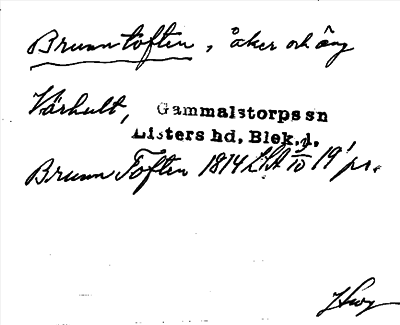 Brunntoften, åker och äng
Vårhult, Gammalstorps sn
Listers hd, Blek. l.
Brunn Toften 1814 LSA 19 pr.